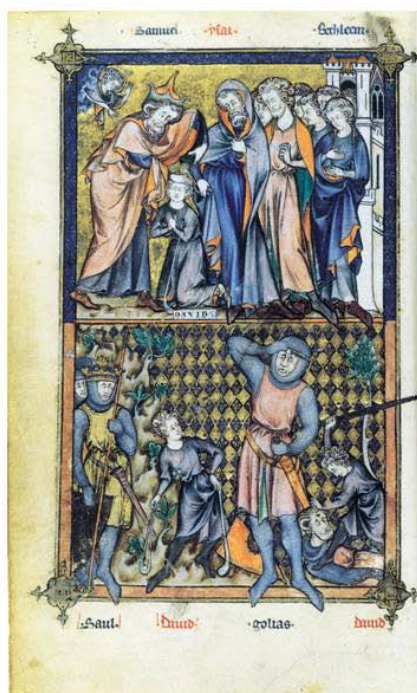 Samuel ·ysai· Bethleem·
DAVID
·Saul· ·david· ·golias· david